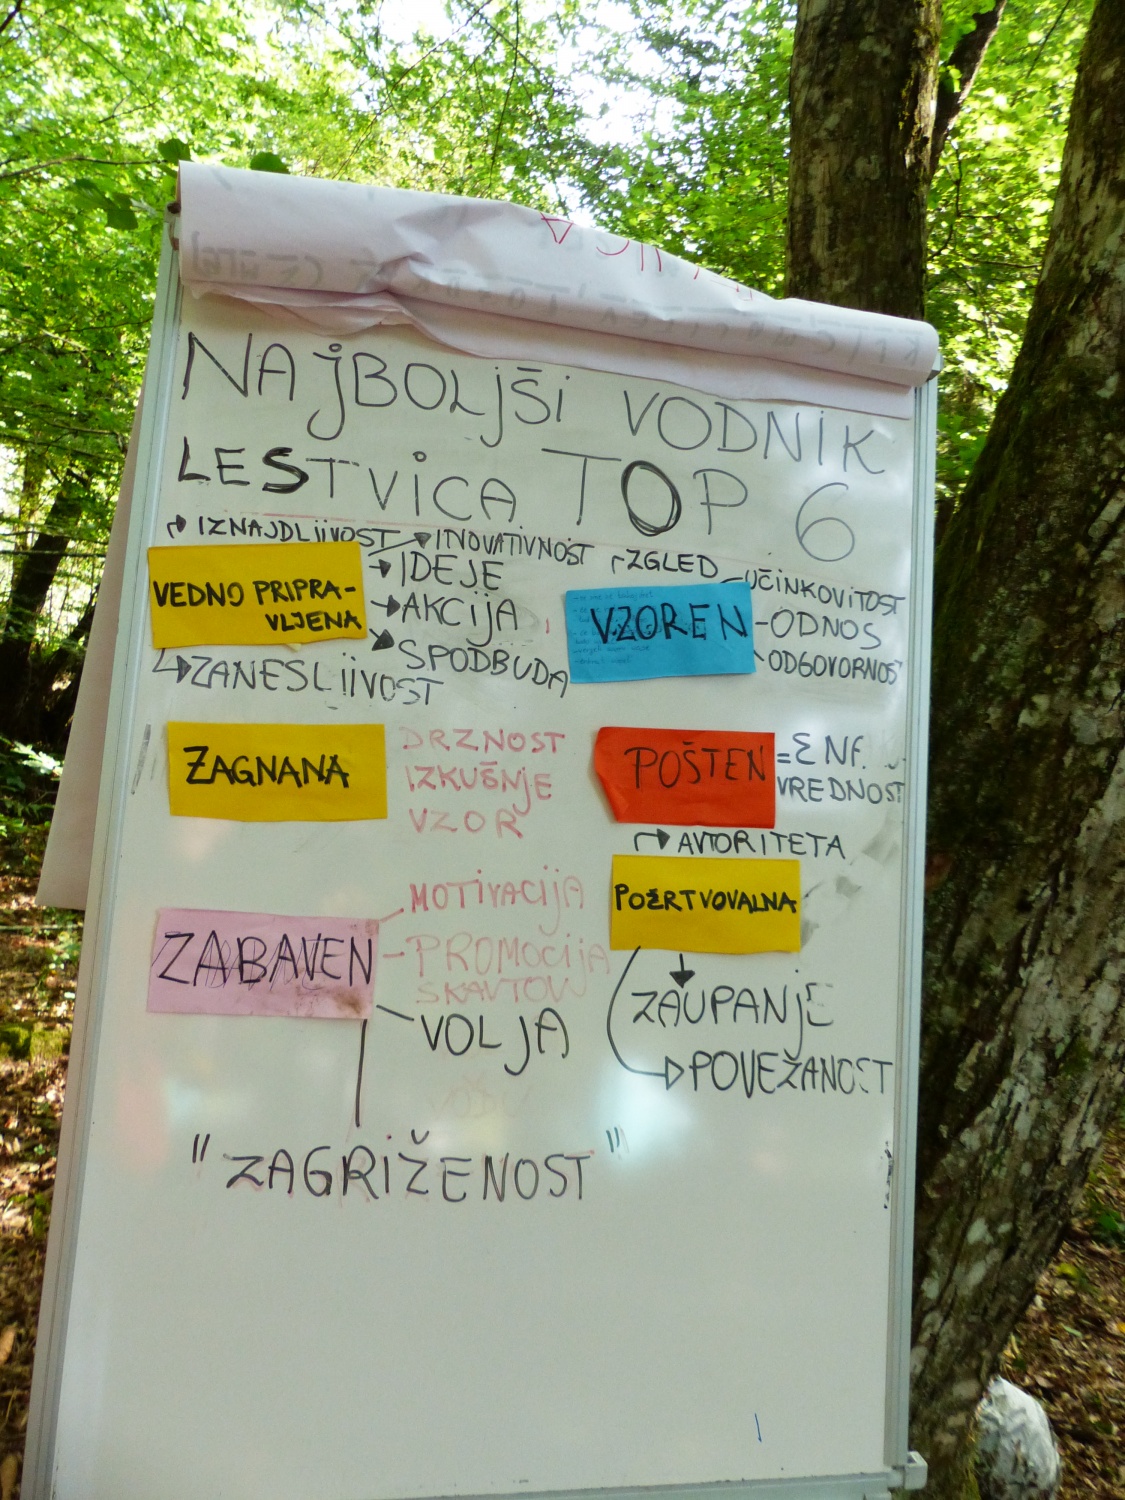 NAJBOLJŠI VODNIK
LESTVICA TOP 6
IZNAJDLJIVOST
INOVATIVNOST
VEDNO PRIPRA-
VLJENA
IDEJE
AKCIJA
SPODBUDA
ZANESLJIVOST
ZGLED
VZOREN
UČINKOVITOST
ODNOS
ODGOVORNOST
ZAGNANA
DRZNOST
IZKUŠNJE
VZOR
POŠTEN
= Σ NF.
VREDNOST
AVTORITETA
POŽRTVOVALNA
ZAUPANJE
POVEŽANOST
ZABAVEN
MOTIVACIJA
PROMOCIJA
SKAVTOV
VOLJA
"ZAGRIŽENOST"